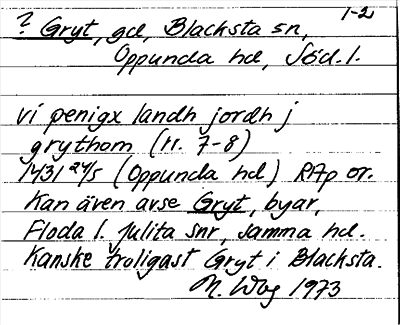 1-2
? Gryt, gd, Blacksta sn,
Oppunda hd, Söd. l.
vi penigx landh jordh j
grythom (r. 7-8)
1431 24/5 (Oppunda hd) RAp or.
Kan även avse Gryt, byar,
Floda l. Julita snr, samma hd.
Kanske troligast Gryt i Blacksta.
N. Wbg 1973